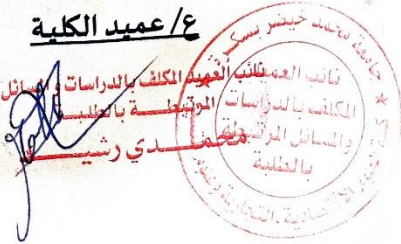 ع/ عميد الكلية
نائب العميد المكلف بالدراسات والمسائل
المرتبطة بالطلبة
محمدي رشيد
جامعة محمد خيضر بسكرة
نائب العميد
المكلف بالدراسات
والمسائل المرتبطة
بالطلبة
الاقتصادية، التجارية